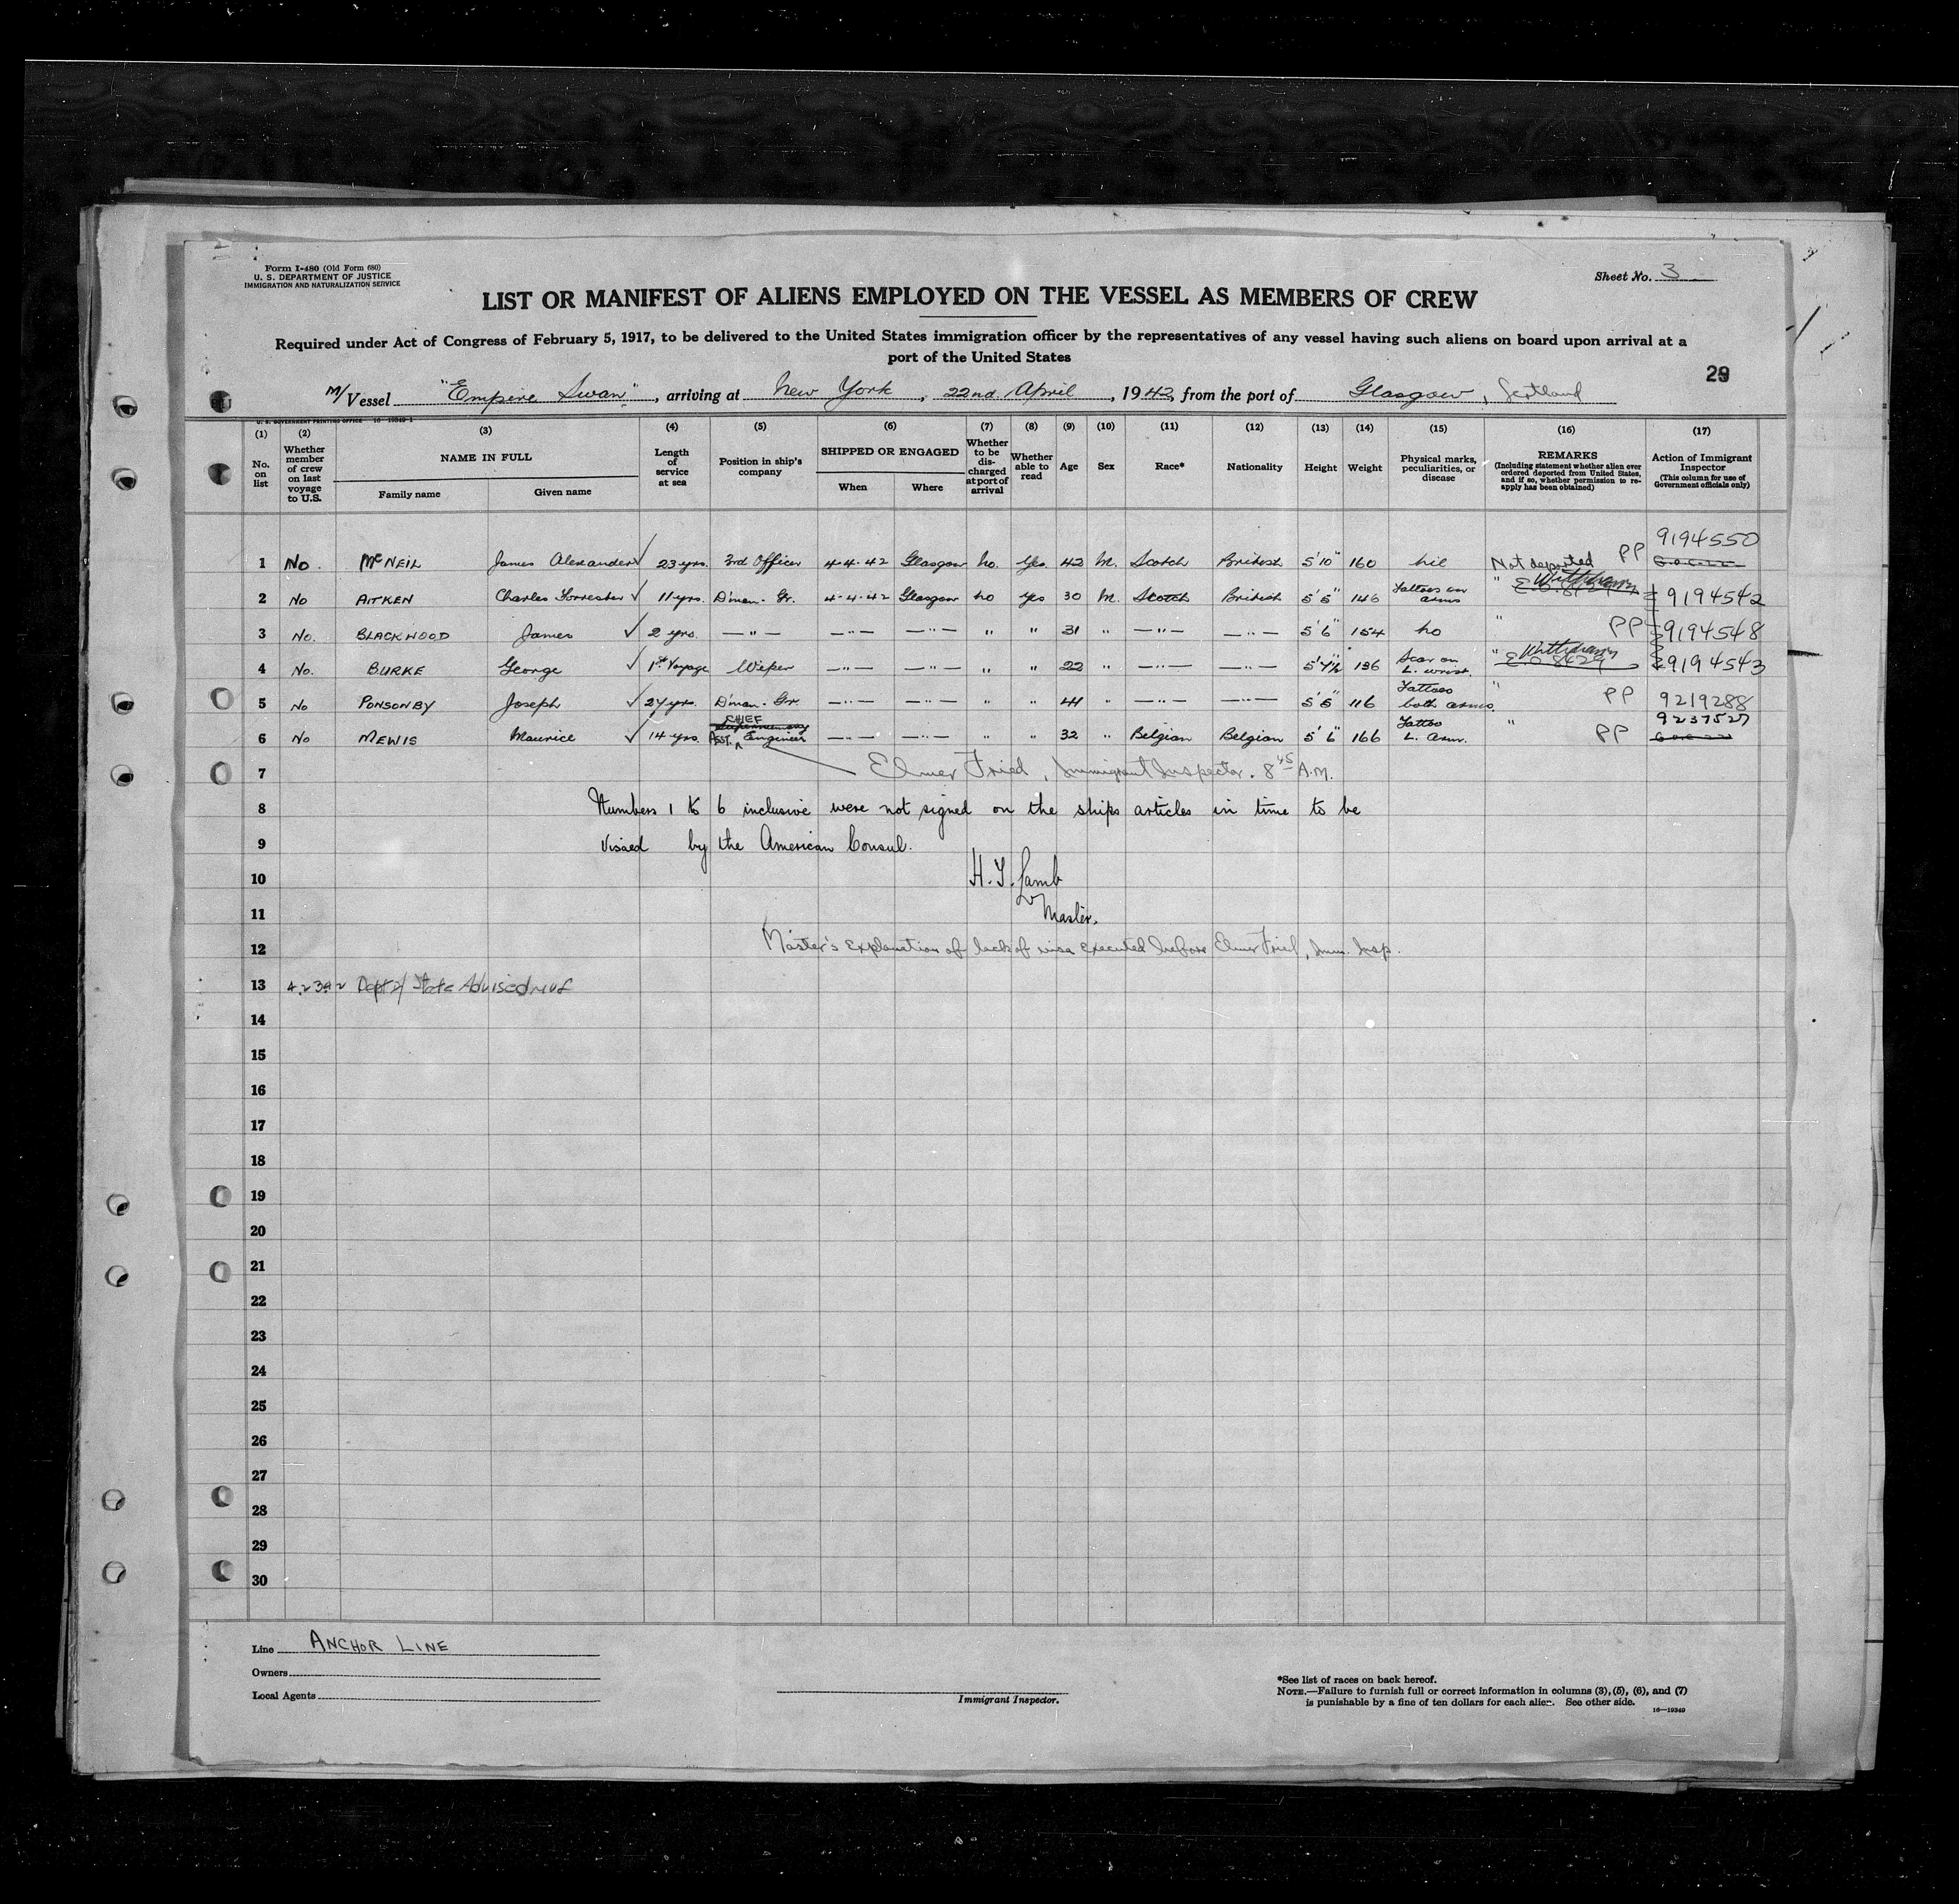 Form I-480 (Old Form 680)
U. S. DEPARTMENT OF JUSTICE
IMMIGRATION AND NATURALIZATION SERVICE
Sheet No. 3
LIST OR MANIFEST OF ALIENS EMPLOYED ON THE VESSEL AS MEMBERS OF CREW
Required under Act of Congress of February 5, 1917, to be delivered to the United States immigration officer by the representatives of any vessel having such aliens on board upon arrival at a
port of the United States
29
M/Vessel "Empire Swan", arriving at New York, 22nd April, 1942, from the port of Glasgow, Scotland
U. S. GOVERNMENT PRINTING OFFICE 16—19349-1
(1) (2) (3) (4) (5) (6) (7) (8) (9) (10) (11) (12) (13) (14) (15) (16) (17)
No. on list
Whether member of crew on last voyage to U.S.
NAME IN FULL
Family name
Given name
Length of service at sea
Position in ship's company
SHIPPED OR ENGAGED
When
Where
Whether to be discharged at port of arrival
Whether able to read
Age
Sex
Race*
Nationality
Height
Weight
Physical marks, peculiarities, or disease
REMARKS
(Including statement whether alien ever ordered deported from United States, and if so, whether permission to re-apply has been obtained)
Action of Immigrant Inspector
(This column for use of Government officials only)
1 No. McNEIL James Alexander ✓ 23 yrs. 3rd Officer 4-4-42 Glasgow no. Yes. 42 M. Scotch British 5'10" 160 nil Not deported PP 9194550
2 No AITKEN Charles Forrester ✓ 11 yrs. D'man. Gr. 4-4-42 Glasgow no yes 30 M. Scotch British 5'5" 146 Tattoos on arms " Withdrawn E.O. 8429 9194542
3 No. BLACKWOOD James ✓ 2 yrs. —"— —"— —"— " " 31 " —"— —"— 5'6" 154 no " PP 9194548
4 No. BURKE George ✓ 1st Voyage Wiper —"— —"— " " 22 " —"— —"— 136 Scar on L. wrist. " Withdrawn E.O. 8429 9194543
5 No PONSONBY Joseph ✓ 24 yrs. D'man. Gr. —"— —"— " " 44 " —"— —"— 5'5" 116 Tattoos both arms. " PP 9219288
6 No MEWIS Maurice ✓ 14 yrs. Asst. CHIEF Engineer —"— —"— " " 32 " Belgian Belgian 5'6" 166 Tattoo L. Arm. " PP 9237527
7 Elmer Fried, Immigrant Inspector. 8 45 A.M.
8 Numbers 1 to 6 inclusive were not signed on the ships articles in time to be
9 visaed by the American Consul.
10 H. Y. Lamb
11 Master.
12 Master's Explanation of lack of visa executed before Elmer Fried, Imm. Insp.
13 4.23.42 Dept of State Advised
14
15
16
17
18
19
20
21
22
23
24
25
26
27
28
29
30
Line ANCHOR LINE
Owners
Local Agents
Immigrant Inspector.
*See list of races on back hereof.
NOTE.—Failure to furnish full or correct information in columns (3), (5), (6), and (7)
is punishable by a fine of ten dollars for each alien. See other side.
16—19349